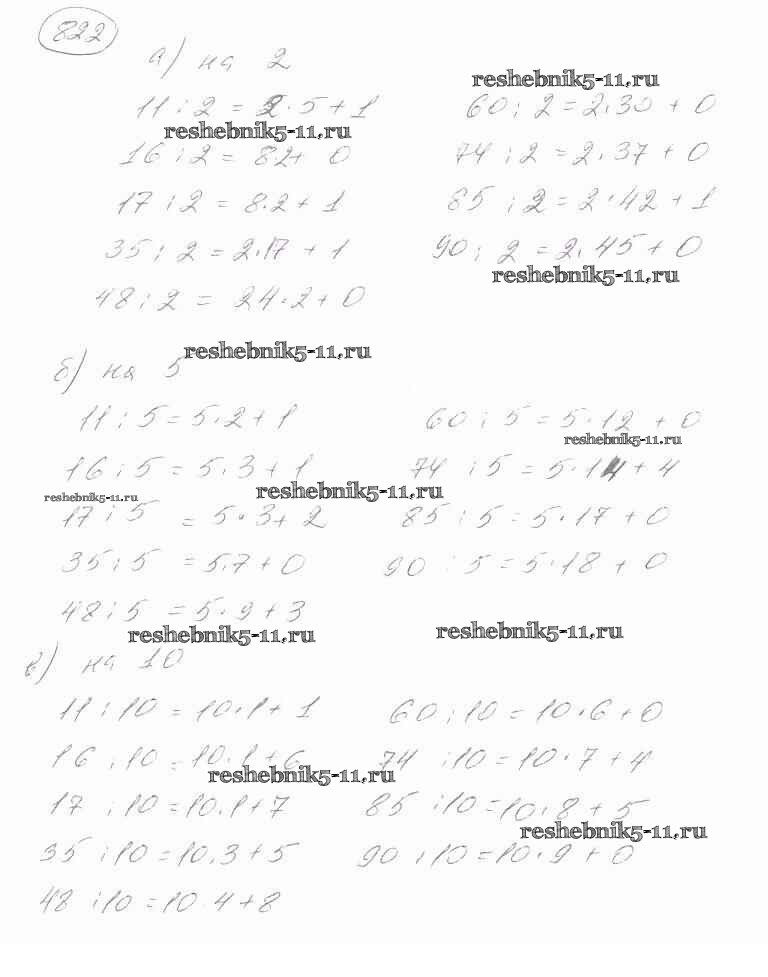 822
а) на 2
reshebnik5-11.ru
11 : 2 = 2 · 5 + 1
60 : 2 = 2 · 30 + 0
reshebnik5-11.ru
16 : 2 = 8 · 2 + 0
74 : 2 = 2 · 37 + 0
17 : 2 = 8 · 2 + 1
85 : 2 = 2 · 42 + 1
35 : 2 = 2 · 17 + 1
90 : 2 = 2 · 45 + 0
reshebnik5-11.ru
48 : 2 = 24 · 2 + 0
reshebnik5-11.ru
б) на 5
11 : 5 = 5 · 2 + 1
60 : 5 = 5 · 12 + 0
reshebnik5-11.ru
16 : 5 = 5 · 3 + 1
74 : 5 = 5 · 14 + 4
reshebnik5-11.ru
reshebnik5-11.ru
17 : 5 = 5 · 3 + 2
85 : 5 = 5 · 17 + 0
35 : 5 = 5 · 7 + 0
90 : 5 = 5 · 18 + 0
48 : 5 = 5 · 9 + 3
reshebnik5-11.ru
reshebnik5-11.ru
в) на 10
11 : 10 = 10 · 1 + 1
60 : 10 = 10 · 6 + 0
16 : 10 = 10 · 1 + 6
74 : 10 = 10 · 7 + 4
reshebnik5-11.ru
17 : 10 = 10 · 1 + 7
85 : 10 = 10 · 8 + 5
reshebnik5-11.ru
35 : 10 = 10 · 3 + 5
90 : 10 = 10 · 9 + 0
48 : 10 = 10 · 4 + 8